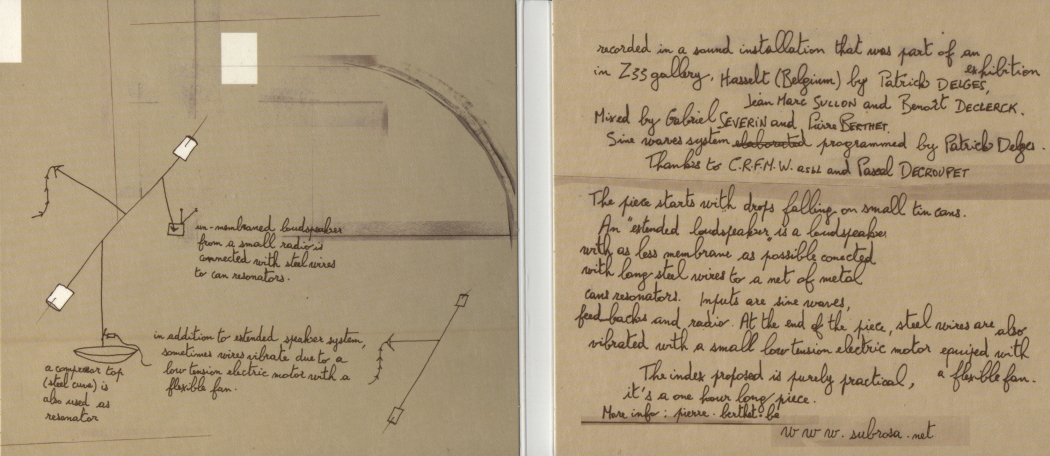 un-membraned loudspeaker
from a small radio is
connected with steel wires
to can resonators.
in addition to extended speaker system,
sometimes wires vibrate due to a
low tension electric motor with a
flexible fan.
a compessor top
(steel curve) is
also used as
resonator
recorded in a sound installation that was part of an
exhibition
in Z33 gallery, Hasselt (Belgium) by Patrick DELGES,
Jean Marc SULLON and Benoît DECLERCK.
Mixed by Gabriel SEVERIN and Pierre BERTHET.
Sine waves system elaborated programmed by Patrick Delges.
Thanks to C.R.F.M.W. asbl and Pascal DECROUPET
The piece starts with drops falling on small tin cans.
An "extended loudspeaker" is a loudspeaker
with as less membrane as possible conected
with long steel wires to a net of metal
cans resonators. Inputs are sine waves,
feed backs and radio. At the end of the piece, steel wires are also
vibrated with a small low tension electric motor equiped with
a flexible fan.
The index proposed is purely practical,
it's a one hour long piece.
More info : pierre.berthet.be
www.subrosa.net